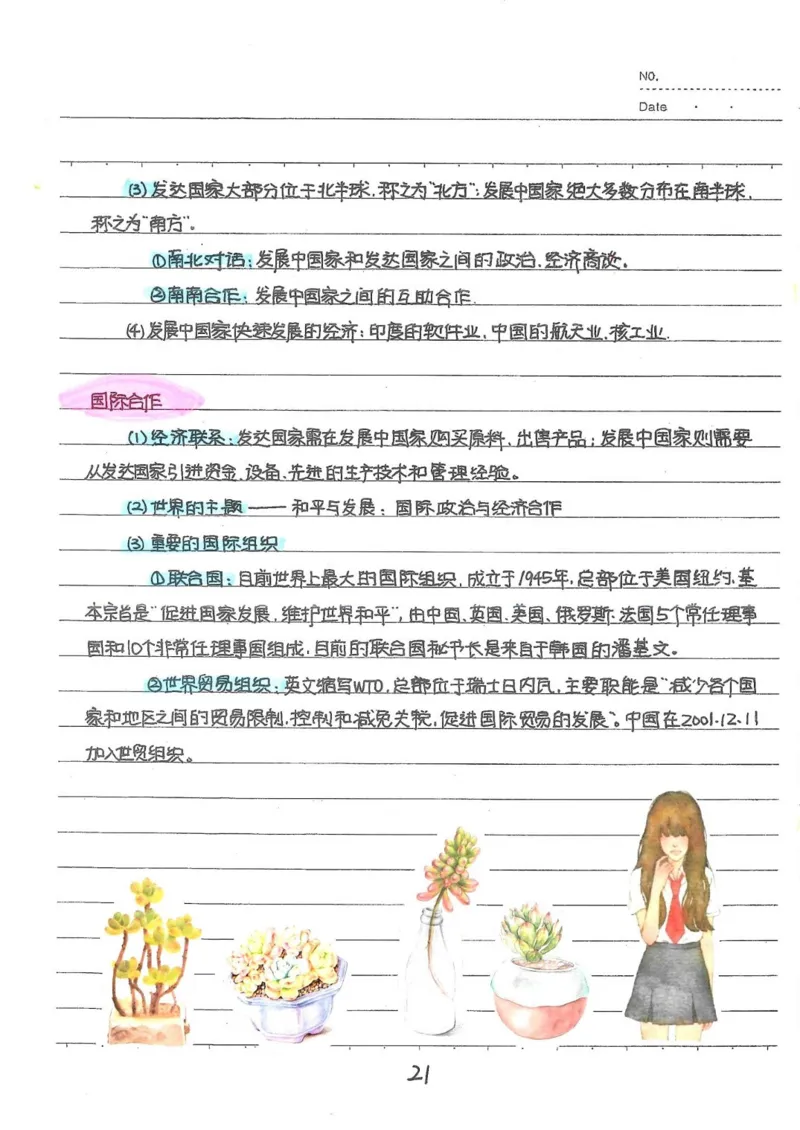 NO.
Date
(3)发达国家大部分位于北半球,称之为"北方";发展中国家绝大多数分布在南半球,
称之为"南方"。
①南北对话:发展中国家和发达国家之间的政治、经济商谈。
②南南合作:发展中国家之间的互助合作.
(4)发展中国家快速发展的经济:印度的软件业,中国的航天业、核工业.
国际合作
(1)经济联系:发达国家需在发展中国家购买原料、出售产品;发展中国家则需要
从发达国家引进资金、设备、先进的生产技术和管理经验。
(2)世界的主题——和平与发展;国际政治与经济合作
(3)重要的国际组织
①联合国:目前世界上最大的国际组织,成立于1945年,总部位于美国纽约,基
本宗旨是"促进国家发展,维护世界和平",由中国、英国、美国、俄罗斯、法国5个常任理事
国和10个非常任理事国组成,目前的联合国秘书长是来自于韩国的潘基文。
②世界贸易组织:英文缩写WTO,总部位于瑞士日内瓦,主要职能是"减少各个国
家和地区之间的贸易限制,控制和减免关税,促进国际贸易的发展"。中国在2001.12.11
加入世贸组织。
21